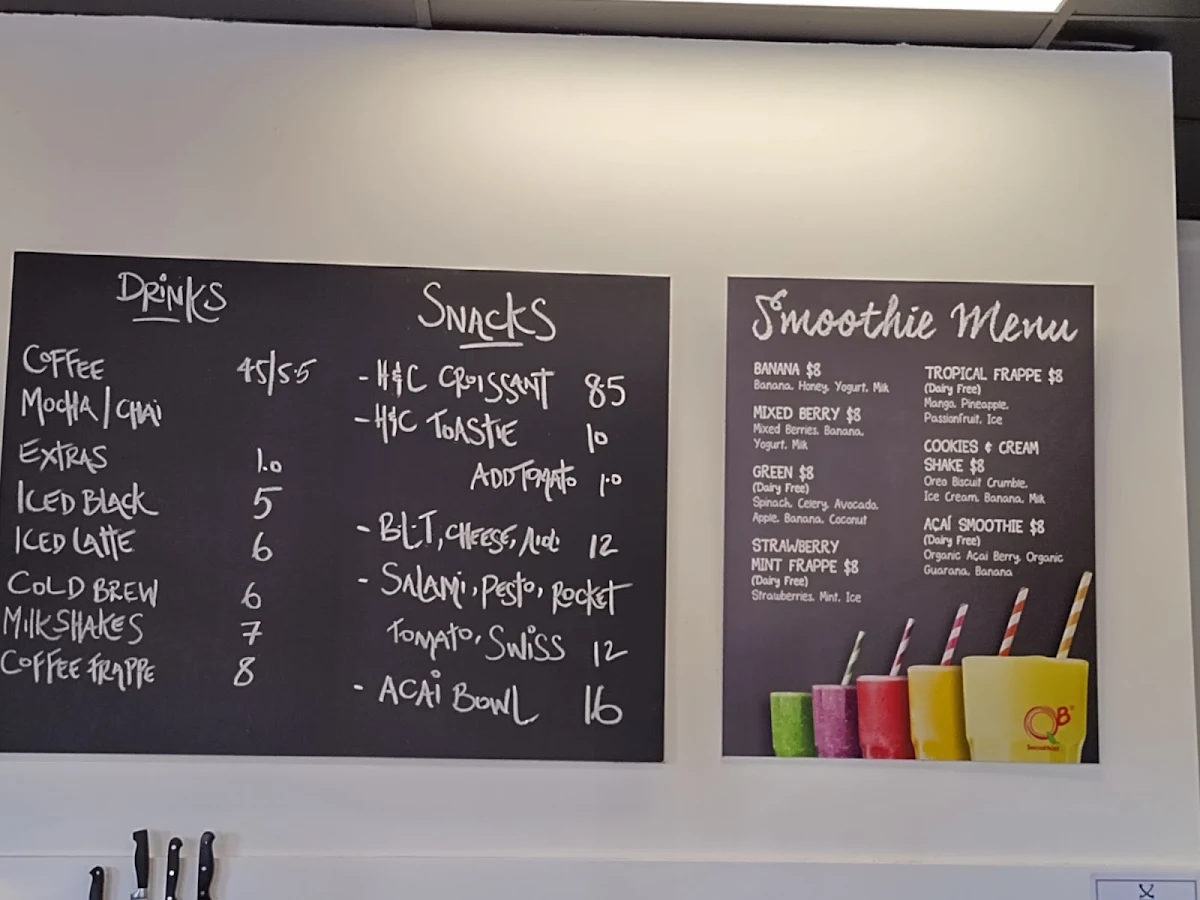 DRINKS
COFFEE 45/5.5
MOCHA/CHAI
EXTRAS 1.0
ICED BLACK 5
ICED LATTE 6
COLD BREW 6
MILKSHAKES 7
COFFEE FRAPPE 8
SNACKS
- H&C CROISSANT 8.5
- H&C TOASTIE 10
ADD TOMATO 1.0
- B.L.T, CHEESE, AIOLI 12
- SALAMI, PESTO, ROCKET
TOMATO, SWISS 12
- ACAI BOWL 16
Smoothie Menu
BANANA $8
Banana, Honey, Yogurt, Milk
MIXED BERRY $8
Mixed Berries, Banana,
Yogurt, Milk
GREEN $8
(Dairy Free)
Spinach, Celery, Avocado,
Apple, Banana, Coconut
STRAWBERRY
MINT FRAPPE $8
(Dairy Free)
Strawberries, Mint, Ice
TROPICAL FRAPPE $8
(Dairy Free)
Mango, Pineapple,
Passionfruit, Ice
COOKIES & CREAM
SHAKE $8
Oreo Biscuit Crumble,
Ice Cream, Banana, Milk
AÇAÍ SMOOTHIE $8
(Dairy Free)
Organic Acai Berry, Organic
Guarana, Banana
QB